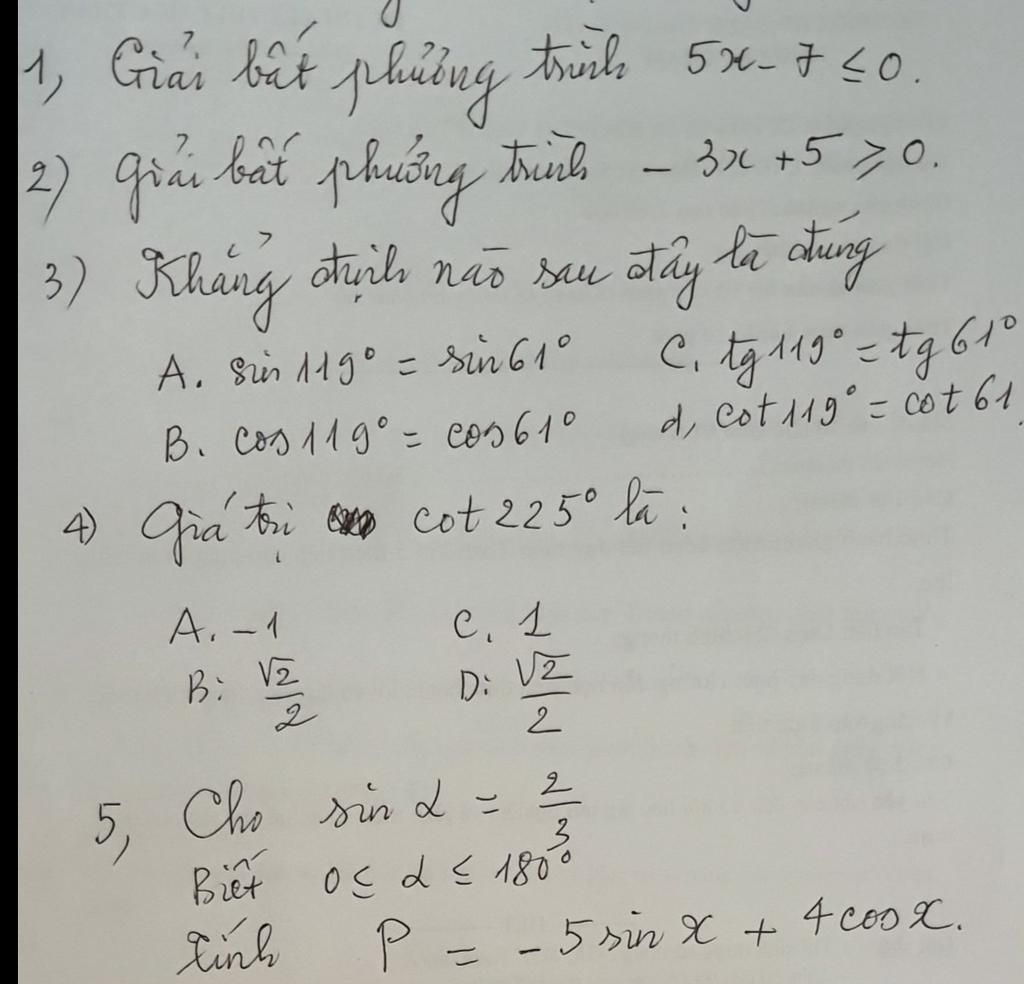 1, Giải bất phương trình 5x - 7 ≤ 0.
2) Giải bất phương trình - 3x + 5 ≥ 0.
3) Khẳng định nào sau đây là đúng
A. sin 119° = sin 61° C. tg 119° = tg 61°
B. cos 119° = cos 61° d, cot 119° = cot 61.
4) Giá trị cot 225° là:
A. -1 C. 1
B: √2/2 D: √2/2
5, Cho sin α = 2/3
Biết 0 ≤ α ≤ 180°
Tính P = - 5 sin x + 4 cos x.